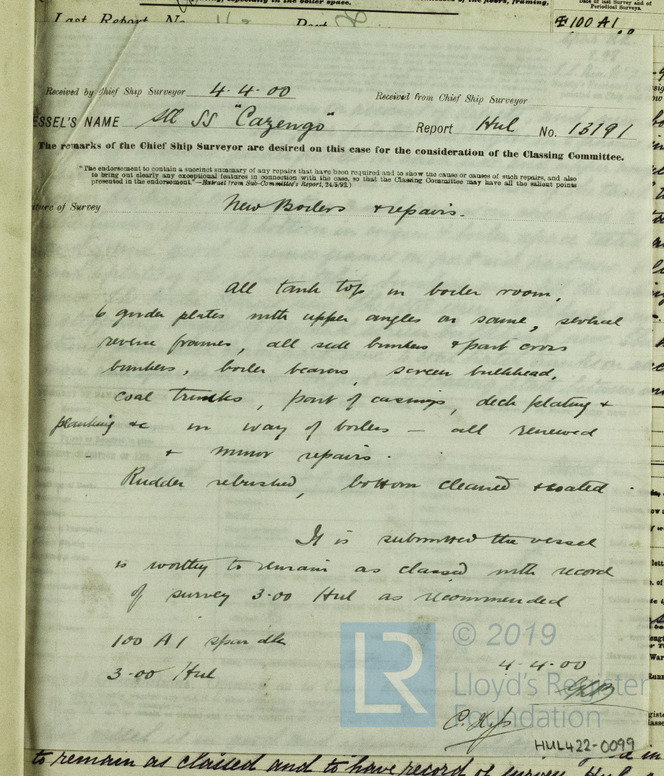 Last Report No
Port
100 A1
Received by Chief Ship Surveyor 4·4·00 Received from Chief Ship Surveyor
ESSEL'S NAME Stl SS "Cazengo" Report Hul No. 13191
The remarks of the Chief Ship Surveyor are desired on this case for the consideration of the Classing Committee.
"The endorsement to contain a succinct summary of any repairs that have been required and to show the cause or causes of such repairs, and also
to bring out clearly any exceptional features in connection with the case, so that the Classing Committee may have all the salient points
presented in the endorsement."—(Extract from Sub-Committee's Report, 24/3/92.)
ture of Survey New Boilers & repairs.
All tank top in boiler room,
6 girder plates with upper angles on same, several
reverse frames, all side bunkers & part cross
bunkers, boiler bearers, screen bulkhead,
coal trunks, part of casings, deck plating &
planking &c in way of boilers — all renewed
& minor repairs.
Rudder rebushed, bottom cleaned & coated.
It is submitted the vessel
is worthy to remain as classed with record
of survey 3·00 Hul as recommended
100 A1 spar dk
3·00 Hul
4·4·00
© 2019
Lloyd's Register
Foundation
LR
HUL422-0099
to remain as classed and to have record of survey Hul